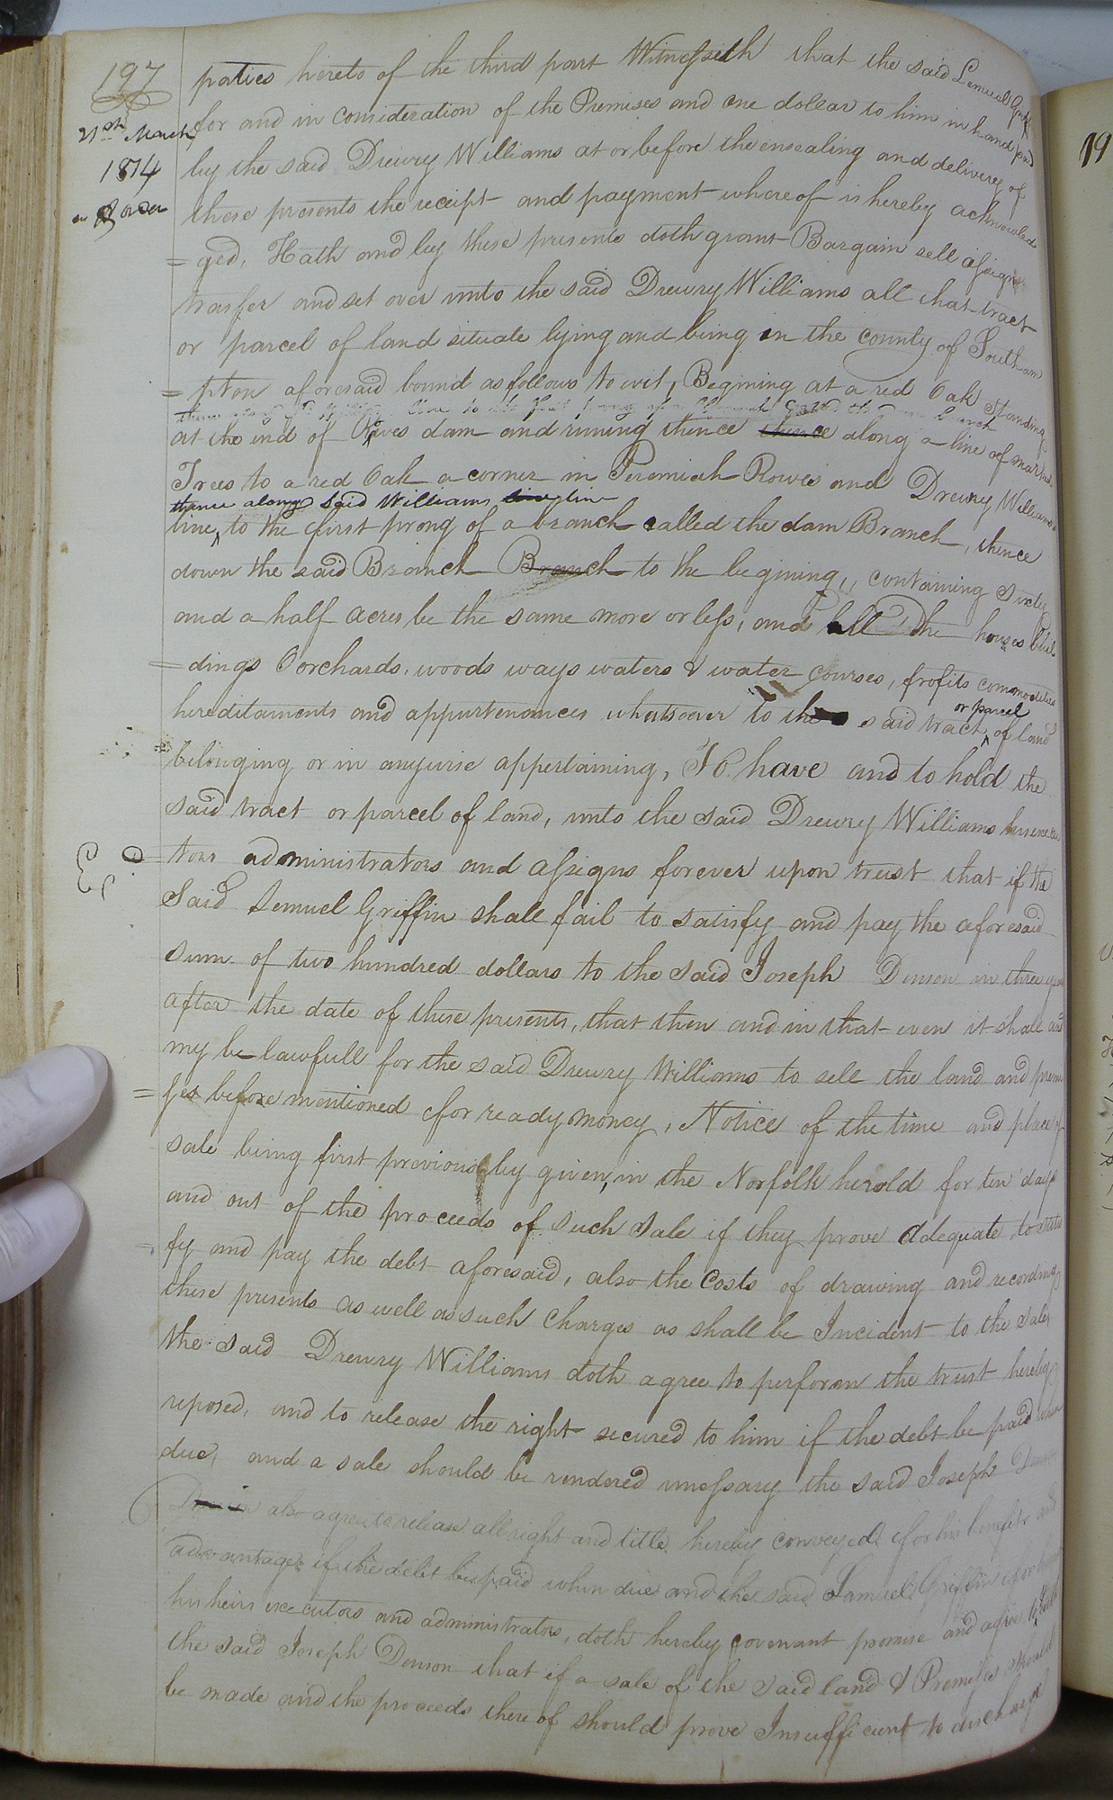 197
21st March
1814
parties hereto of the third part Witnesseth that the said Lemuel Griffin
for and in consideration of the Premises and one dollar to him in hand paid
by the said Drewry Williams at or before the ensealing and delivery of
these presents the receipt and payment whereof is hereby acknowled
= ged, Hath and by these presents doth grant Bargain sell assign
transfer and set over unto the said Drewry Williams all that tract
or parcel of land situate lying and being in the county of Southam
= pton aforesaid bound as follows to wit, Begining at a red Oak standing
at the end of dam and runing thence thence along a line of marked
Trees to a red Oak a corner in Jeremiah Rowes and Drewry Williams
thence along said Williams line
line, to the first prong of a branch called the dam Branch, thence
down the said Branch Branch to the begining, containing sixty
and a half acres be the same more or less, and all the houses buil
= dings Oorchards, woods ways waters & water courses, profits commodities
or parcel
hereditaments and appurtenances whatsoever to the said tract of land
belonging or in anywise appertaining, To have and to hold the
said tract or parcel of land, unto the said Drewry Williams his execu
= tors administrators and assigns forever upon trust that if the
Said Lemuel Griffin shall fail to satisfy and pay the aforesaid
sum of two hundred dollars to the said Joseph Denson in three years
after the date of these presents, that then and in that even it shall and
my be lawfull for the said Drewry Williams to sell the land and premi
= ses before mentioned for ready money, Notice of the time and place of
sale being first previously given, in the Norfolk herold for ten days
and out of the proceeds of such sale if they prove adequate to satis
= fy and pay the debt aforesaid, also the costs of drawing and recording
these presents as well as such charges as shall be Incident to the sale,
the said Drewry Williams doth agree to perform the trust hereby
reposed, and to release the right secured to him if the debt be paid when
due, and a sale should be rendered unnessary the said Joseph Denson
also agree to release all right and title hereby conveyed for his benefit and
advantage if the debt be paid when due and the said Samuel Griffin for himself
his heirs executors and administrators, doth hereby covenant promise and agree to & with
the said Joseph Denson that if a sale of the said land & Premises should
be made and the proceeds there of should prove Insufficient to discharge
19